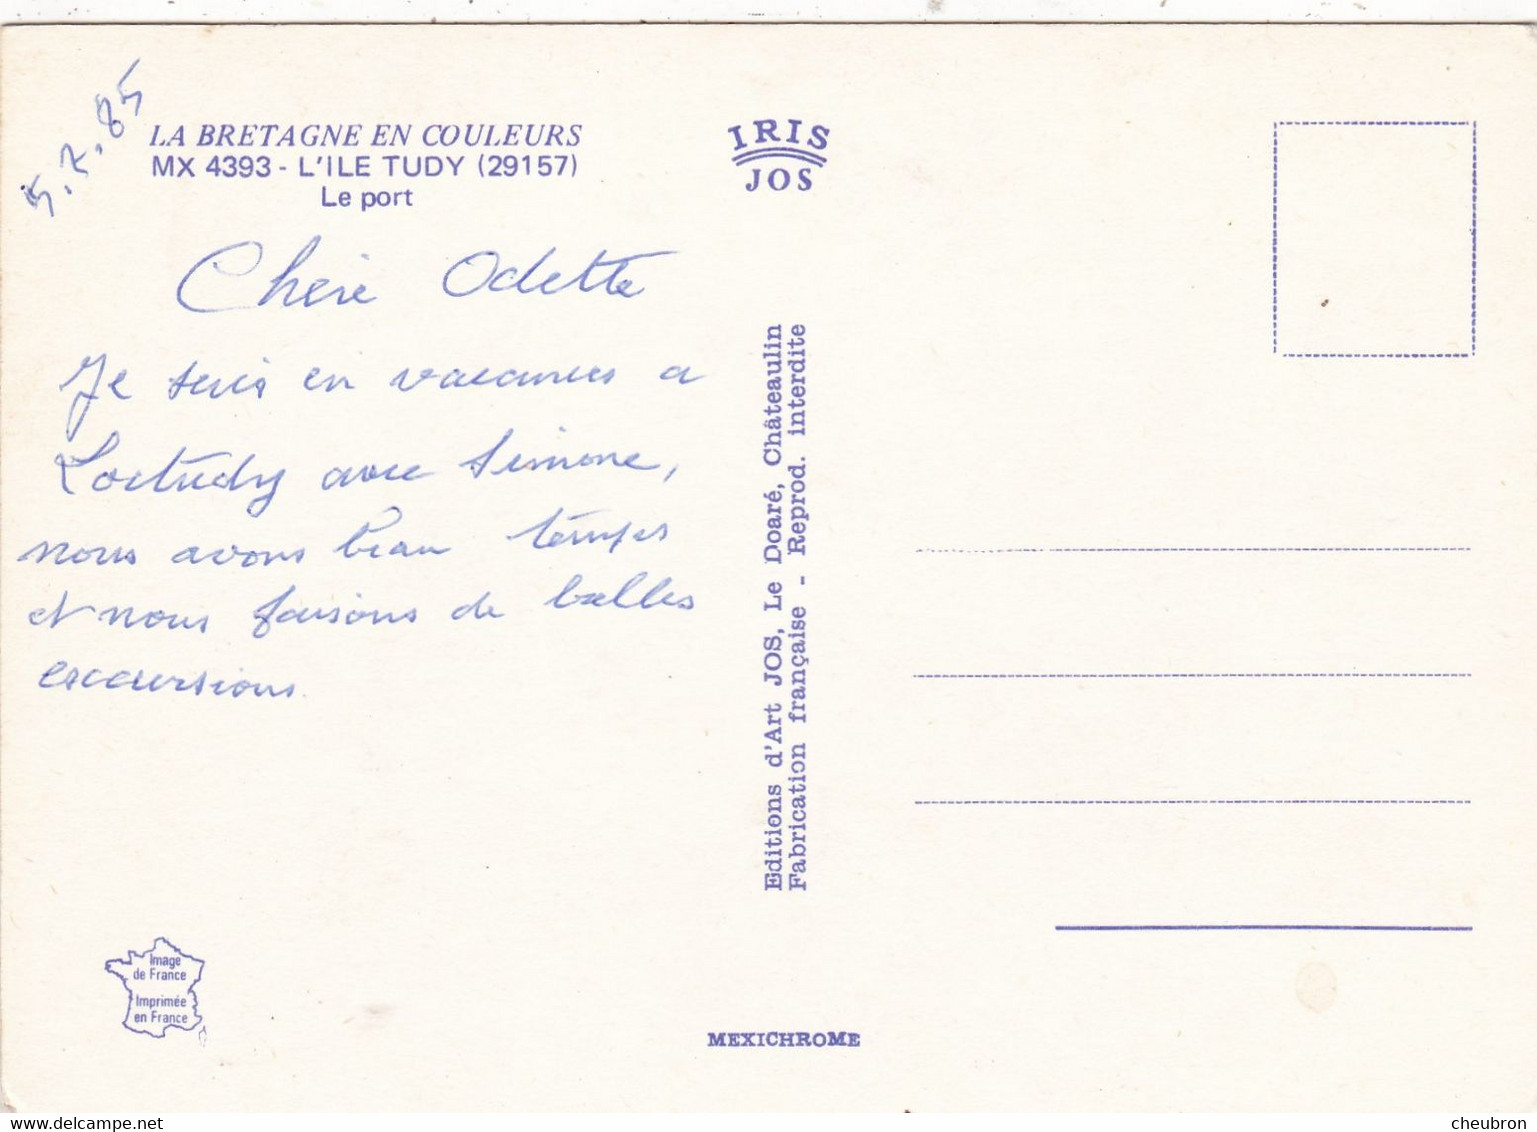 5.7.85
LA BRETAGNE EN COULEURS
MX 4393 - L'ILE TUDY (29157)
Le port
IRIS
JOS
Chère Odette
Je suis en vacances a
Loctudy avec Simone,
nous avons beau temps
et nous faisons de belles
excursions.
Editions d'Art JOS, Le Doaré, Châteaulin
Fabrication française - Reprod. interdite
Image
de France
Imprimée
en France
MEXICHROME
www.delcampe.net
cheubron